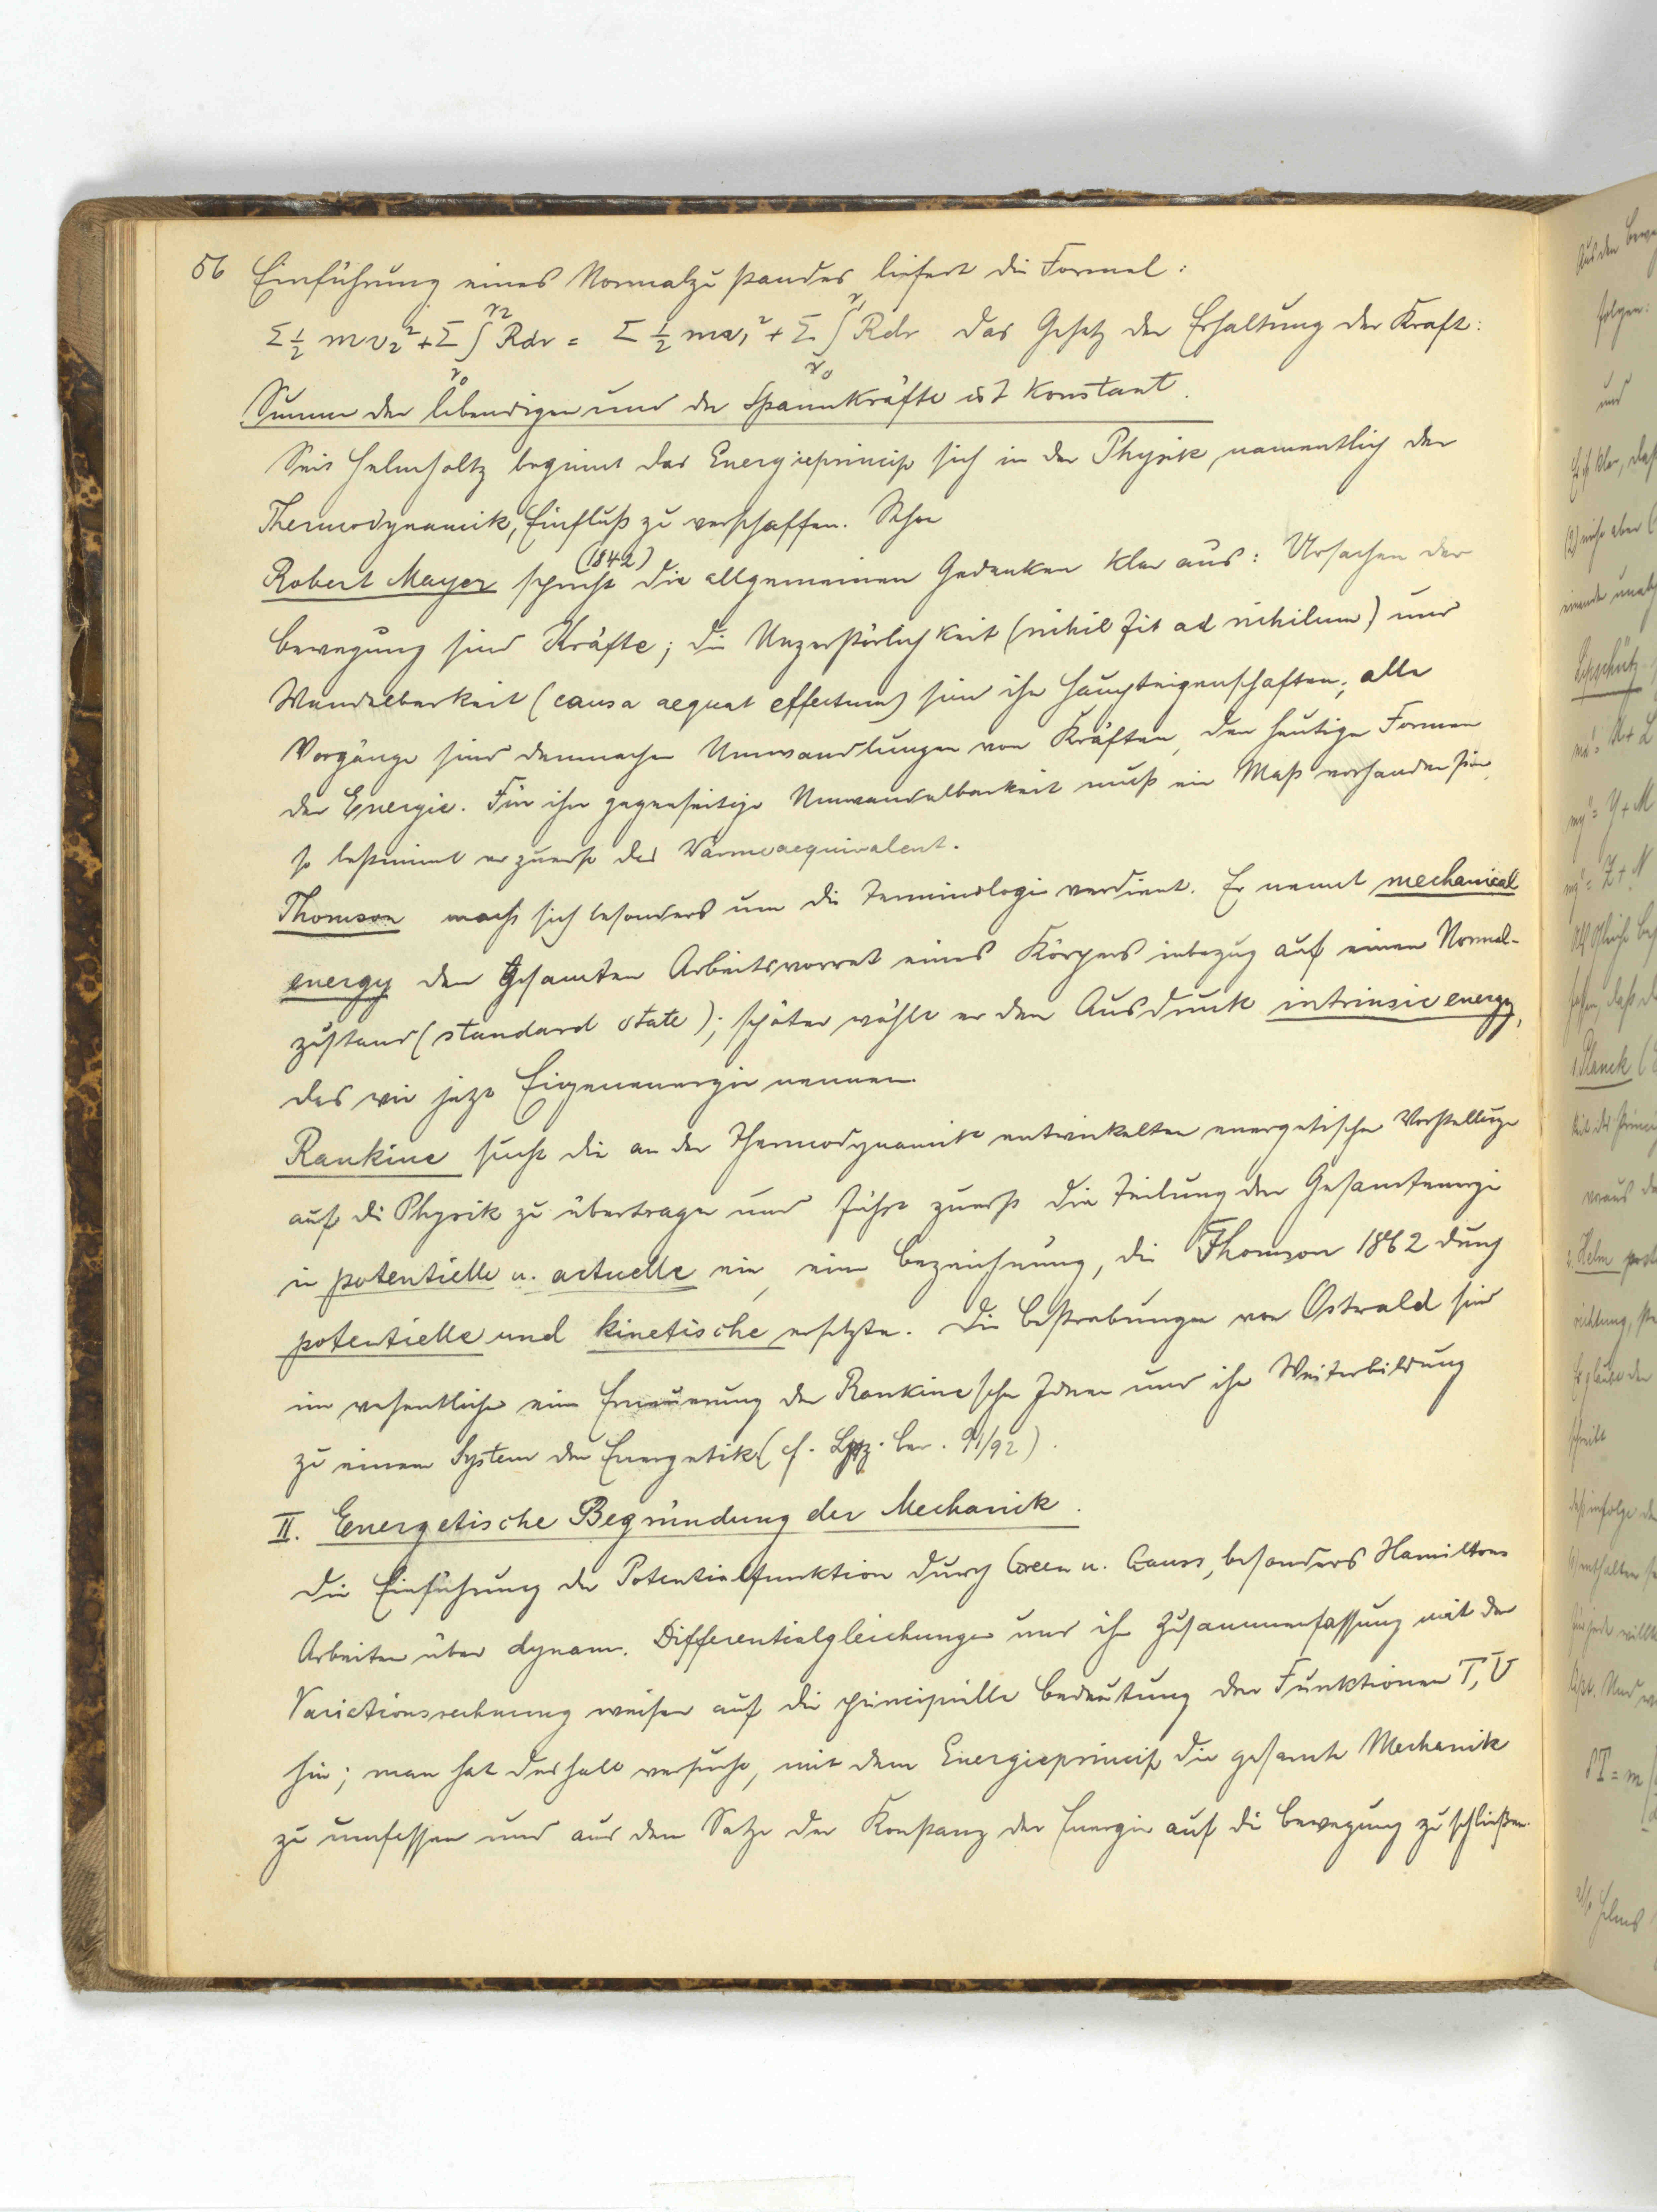 56 Einführung eines Normalzustandes liefert die Formel:
Σ ½ m v₂² + Σ ∫_{r₀}^{r₂} R dr = Σ ½ m v₁² + Σ ∫_{r₀}^{r₁} R dr das Gesetz der Erhaltung der Kraft:
Summe der lebendigen und der Spannkräfte ist konstant.
Seit Helmholtz beginnt das Energieprincip sich in der Physik, namentlich der
Thermodynamik, Einfluß zu verschaffen. Schon
Robert Mayer spricht (1842) die allgemeinen Gedanken klar aus: Ursachen der
Bewegung sind Kräfte; die Unzerstörlichkeit (nihil fit ad nihilum) und
Wandelbarkeit (causa aequat effectum) sind ihre Haupteigenschaften; alle
Vorgänge sind demnach Umwandlungen von Kräften, den heutigen Formen
der Energie. Für ihre gegenseitige Umwandelbarkeit muß ein Maß vorhanden sein,
so bestimmt er zuerst das Wärmeaequivalent.
Thomson macht sich besonders um die Terminologie verdient. Er nennt mechanical
energy den gesamten Arbeitsvorrat eines Körpers inbezug auf einen Normal-
zustand (standard state); später wählt er den Ausdruck intrinsic energy,
das wir jetzt Eigenenergie nennen.
Rankine sucht die an der Thermodynamik entwickelten energetischen Vorstellungen
auf die Physik zu übertragen und führt zuerst die Teilung der Gesamtenergie
in potentielle u. actuelle ein, eine Bezeichnung, die Thomson 1862 durch
potentielle und kinetische ersetzte. Die Bestrebungen von Ostwald sind
im wesentlichen eine Erneuerung der Rankineschen Ideen und ihre Weiterbildung
zu einem System der Energetik (cf. Lpz. Ber. 91/92).
II. Energetische Begründung der Mechanik.
Die Einführung der Potentialfunktion durch Green u. Gauss, besonders Hamiltons
Arbeiten über dynam. Differentialgleichungen und ihre Zusammenfassung mit der
Variationsrechnung weisen auf die principielle Bedeutung der Funktionen T, U
hin; man hat deshalb versucht, mit dem Energieprincip die gesamte Mechanik
zu umfassen und aus dem Satze der Konstanz der Energie auf die Bewegung zu schließen.
Aus den
folgen:
und
(2) nicht aber
Lipschütz
my'' = Y + M
mz'' = Z + N
1. Planck
voraus
2. Helm
richtung,
Er glaubt den
schreibt
daß infolge
δT = m